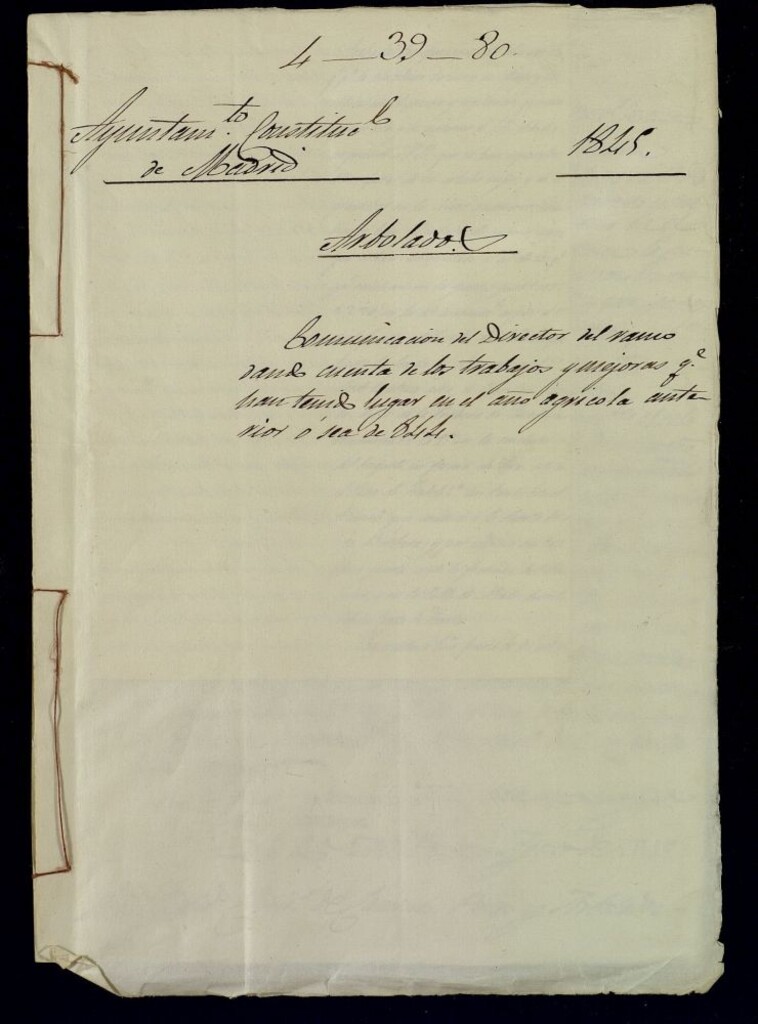 4 — 39 — 80.
Ayuntam.to Constituc.l
de Madrid
1845.
Arbolado.
Comunicacion del Director del ramo
dando cuenta de los trabajos y mejoras q.e
han tenido lugar en el año agricola ante-
rior ó sea de 844.